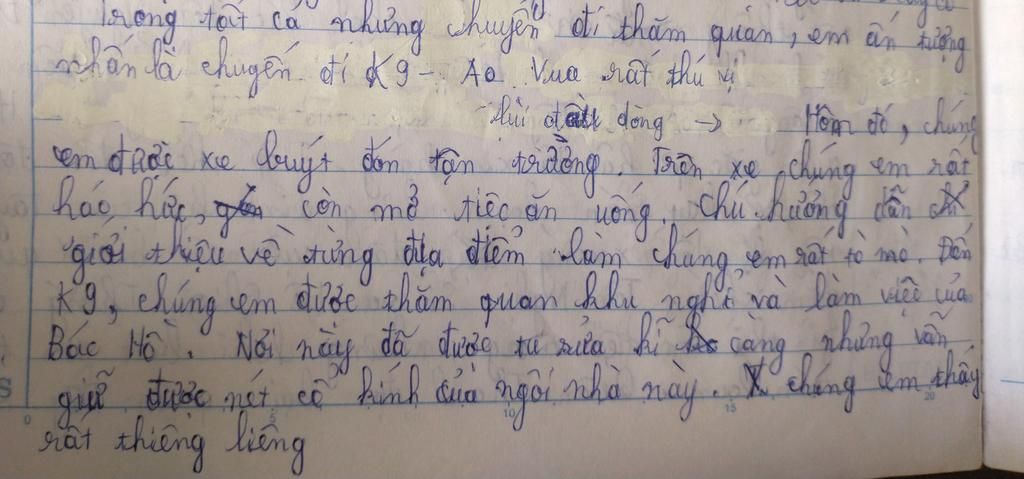 Trong tất cả những chuyến đi thăm quan, em ấn tượng
nhấn là chuyến đi K9 - Ao Vua rất thú vị
lùi đầu dòng → Hôm đó, chúng
em được xe buýt đón tận trường. Trên xe chúng em rất
háo hức, còn mở tiệc ăn uống. Chú hướng dẫn
giới thiệu về từng địa điểm làm chúng em rất tò mò. Đến
K9, chúng em được thăm quan khu nghỉ và làm việc của
Bác Hồ. Nơi này đã được tu sửa kĩ càng nhưng vẫn
giữ được nét cổ kính của ngôi nhà này. chúng em thấy
rất thiêng liêng